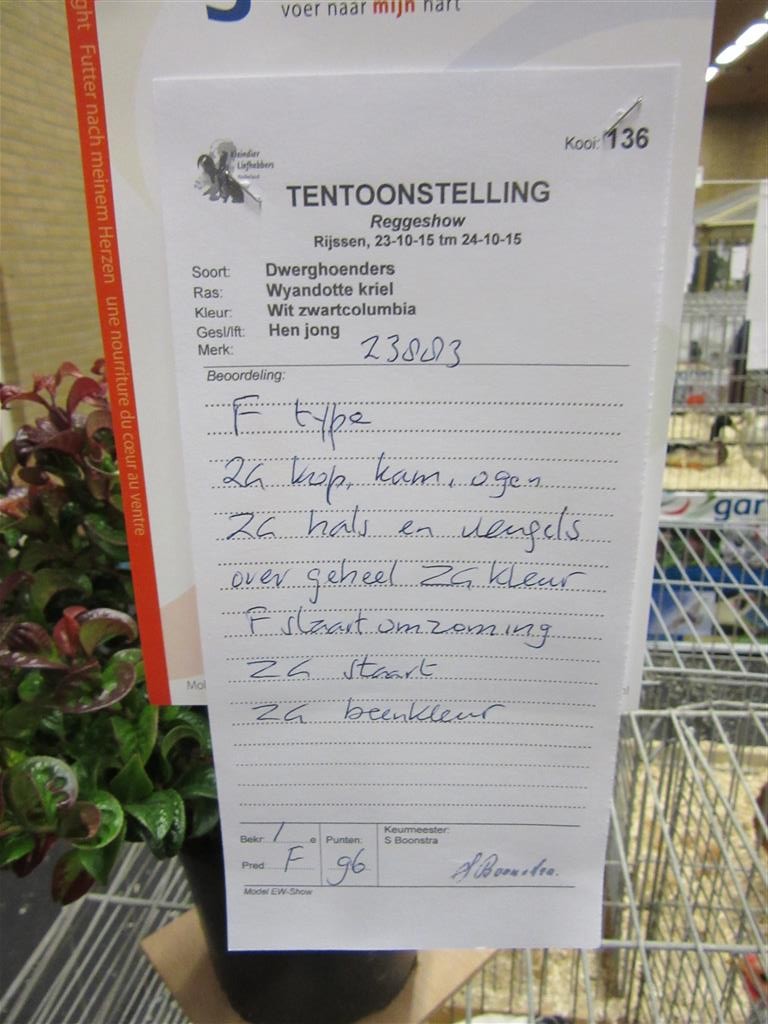 voer naar mijn hart
ght Futter nach meinem Herzen une nourriture du cœur au ventre
Kleindier
Liefhebbers
Kooi: 136
TENTOONSTELLING
Reggeshow
Rijssen, 23-10-15 tm 24-10-15
Soort: Dwerghoenders
Ras: Wyandotte kriel
Kleur: Wit zwartcolumbia
Gesl/lft: Hen jong
Merk: 23883
Beoordeling:
F type
ZG kop, kam, ogen
ZG hals en vleugels
over geheel ZG kleur
F staart omzoming
ZG staart
ZG beenkleur
Bekr 1 e
Punten: 96
Keurmeester:
S Boonstra
Pred F
S Boonstra.
Model EW-Show
gar
Mol